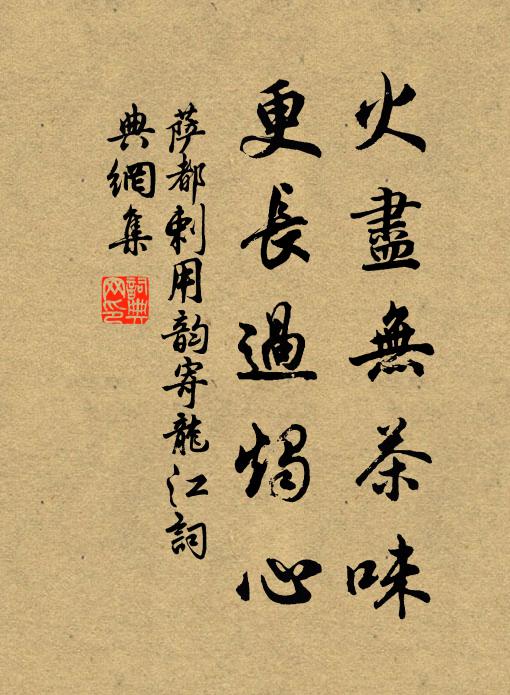 火盡無茶味
更長過燭心
薩都剌用韵寄龍江詞
典網集
詞典網印